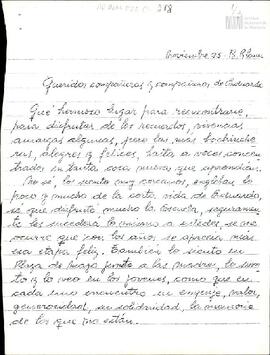 Noviembre 95 - B. Blanca
Queridos compañeros y compañeras de Eduardo
Qué hermoso lugar para reencontrarse,
para disfrutar de los recuerdos, vivencias
amargas algunas, pero las más bochinche
ras, alegres y felices, hasta a veces concen
trados en tanta cosa nueva que aprendían.
No sé, los siento muy cercanos, engloban lo
poco y mucho de la corta vida de Eduardo,
sé que disfrutó mucho la Escuela, seguramen
te les sucederá lo mismo a ustedes, se me
ocurre que con los años se aprecia más
esa etapa feliz. También lo siento en
Plaza de Mayo junto a las madres, lo sien
to y lo veo en los jóvenes, como que en
cada uno encuentro su empuje, valor,
generosidad, su solidaridad, la memoria
de los que no están.